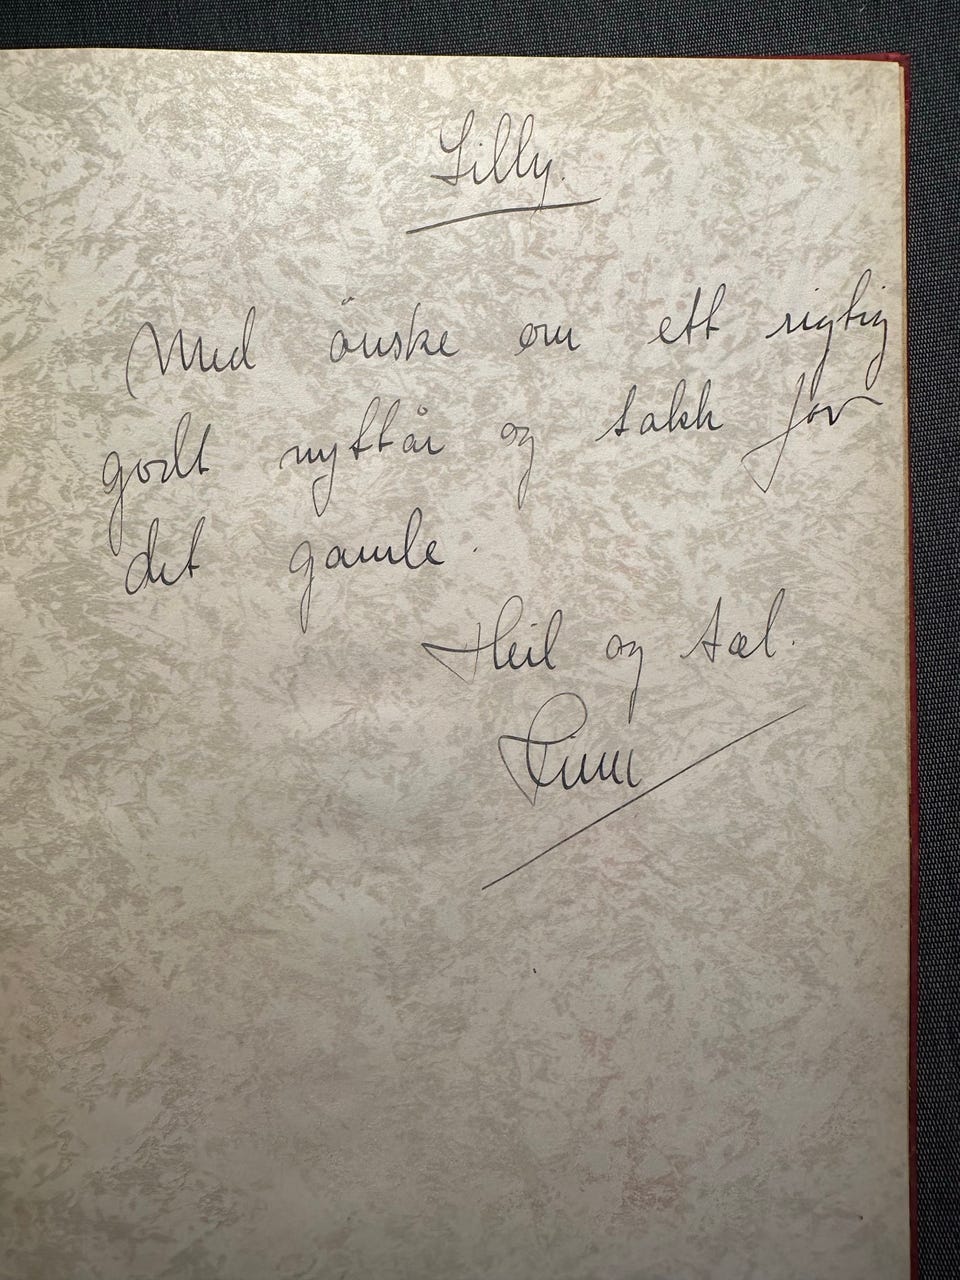 Lilly.
Med önske om ett rigtig
godt nyttår og takk for
det gamle.
Heil og sæl.